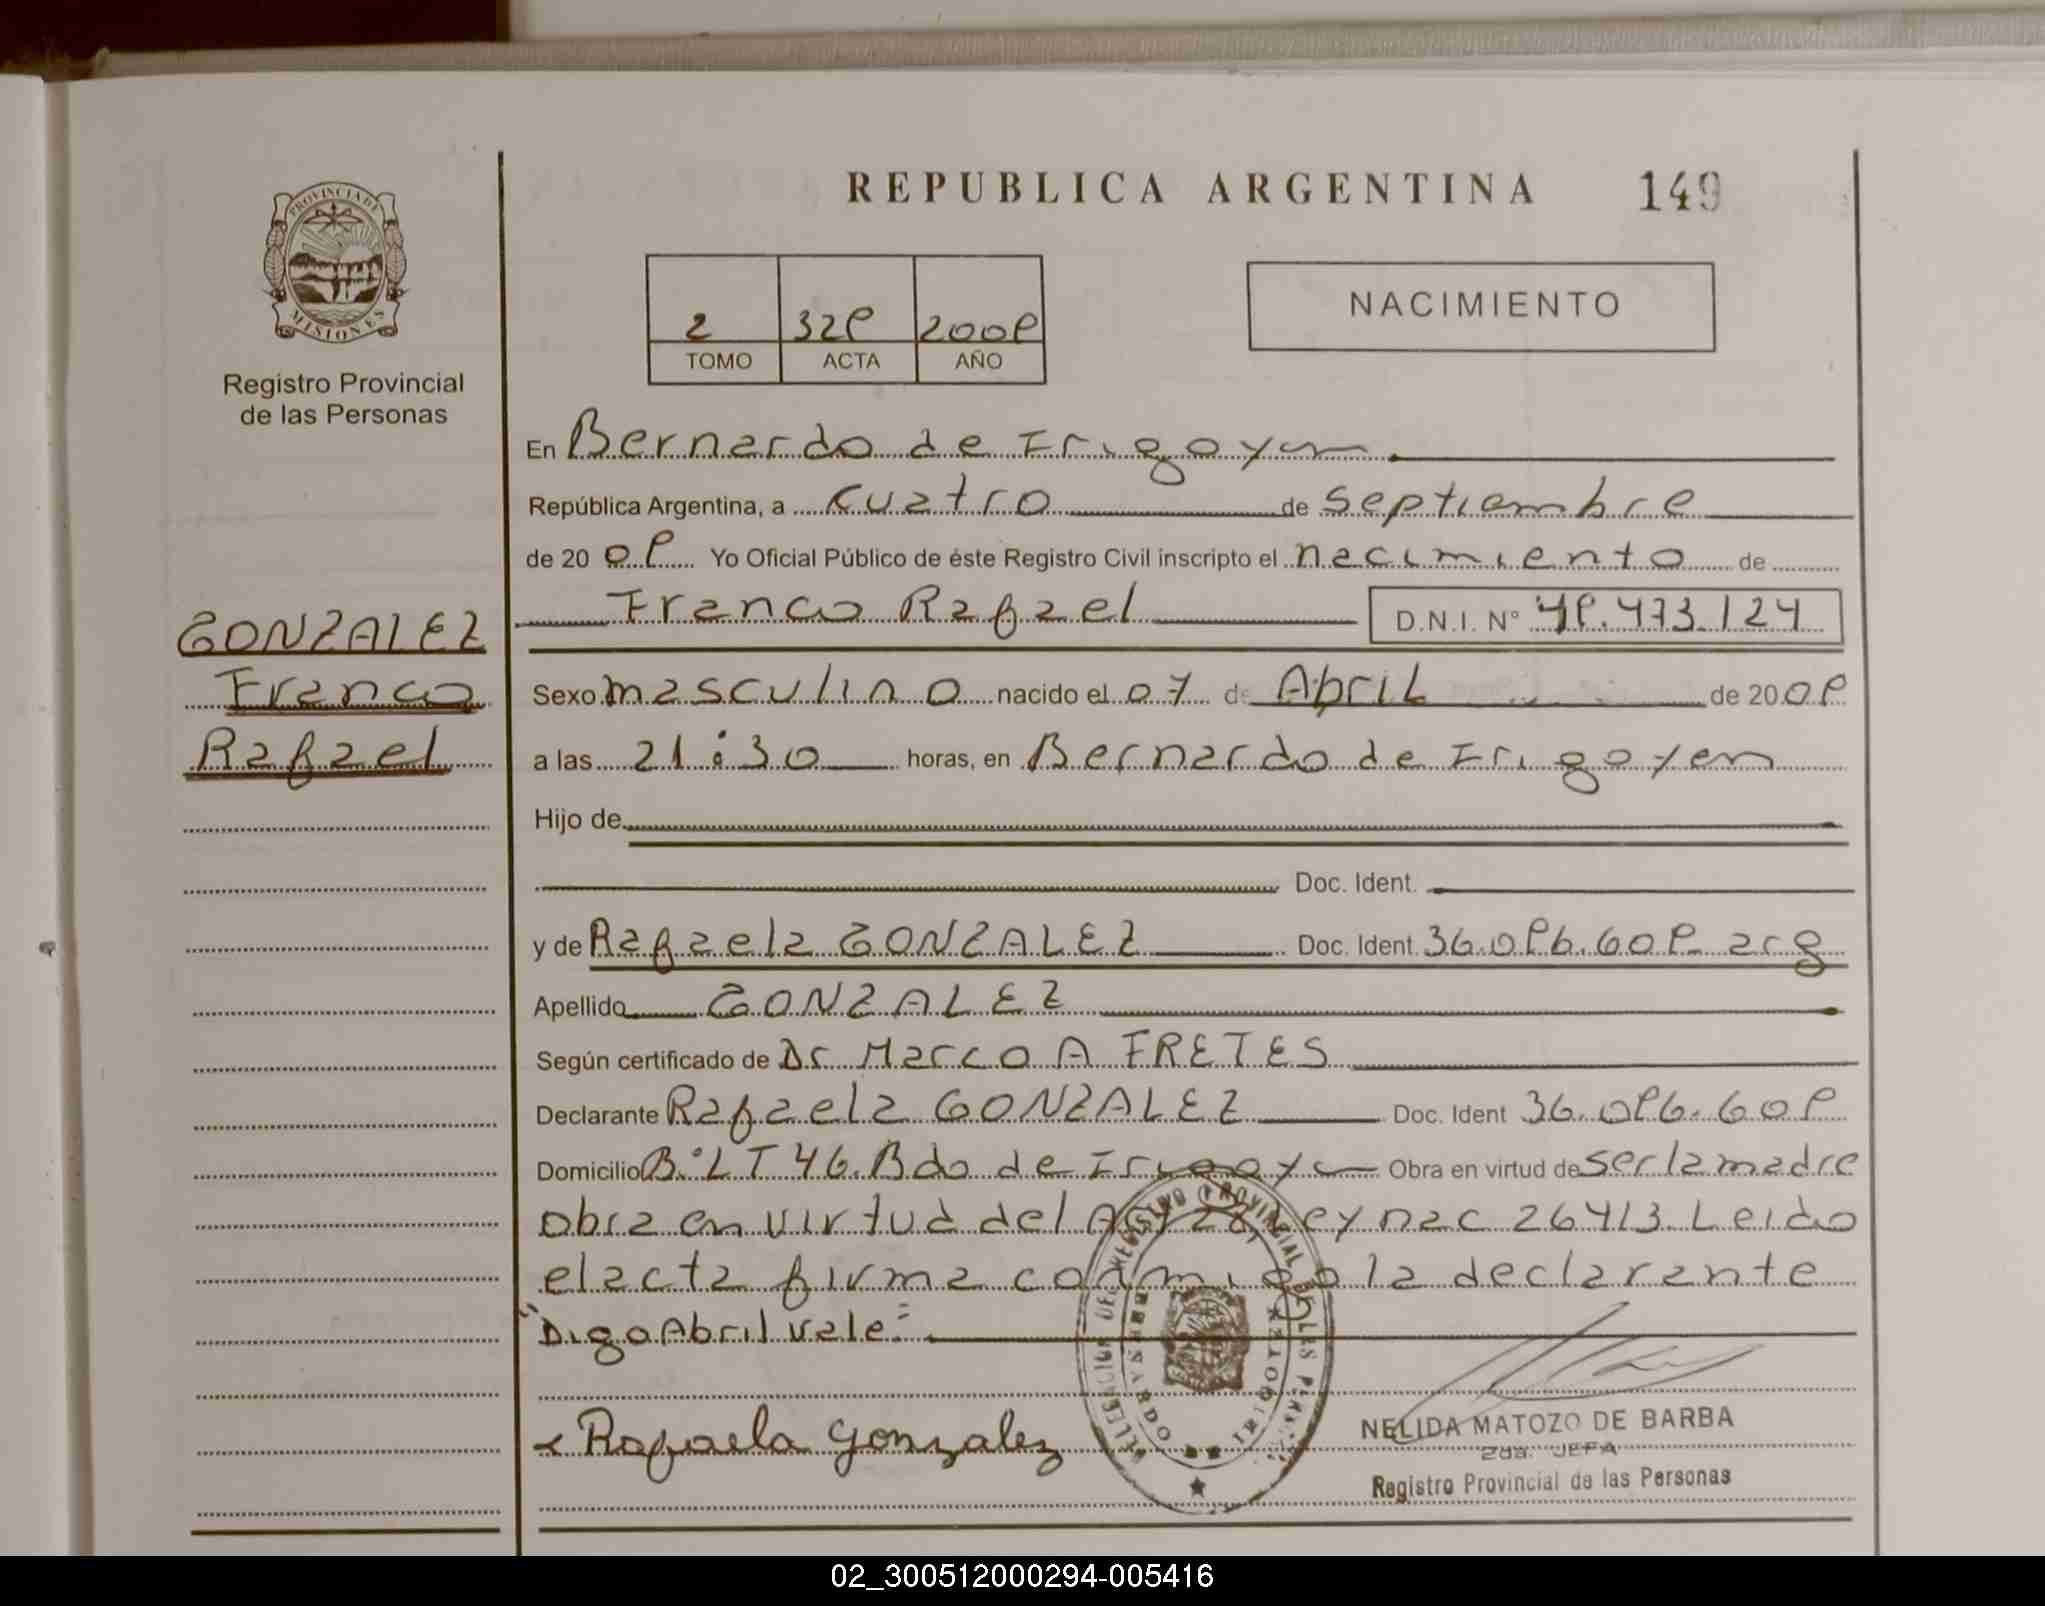 REPUBLICA ARGENTINA 149
PROVINCIA DE
MISIONES
Registro Provincial
de las Personas
2 328 2008
TOMO ACTA AÑO
NACIMIENTO
GONZALEZ
Franco
Rafael
En Bernardo de Irigoyen
República Argentina, a cuatro de septiembre
de 20 08 Yo Oficial Público de éste Registro Civil inscripto el nacimiento de
Franco Rafael D.N.I. Nº 48.473.124
Sexo masculino nacido el 07 de Abril de 20 08
a las 21:30 horas, en Bernardo de Irigoyen
Hijo de
Doc. Ident.
y de Rafaela GONZALEZ Doc. Ident. 36.086.608 arg
Apellido GONZALEZ
Según certificado de Dr Marco A FRETES
Declarante Rafaela GONZALEZ Doc. Ident 36.086.608
Domicilio B.º LT 46. Bdo de Irigoyen Obra en virtud de ser la madre
obra en virtud del Art 28 Ley nac 26413 Leido
el acta firma conmigo la declarante
"Digo Abril vale."
Rafaela Gonzalez
NELIDA MATOZO DE BARBA
2da. JEFA
Registro Provincial de las Personas
02_300512000294-005416